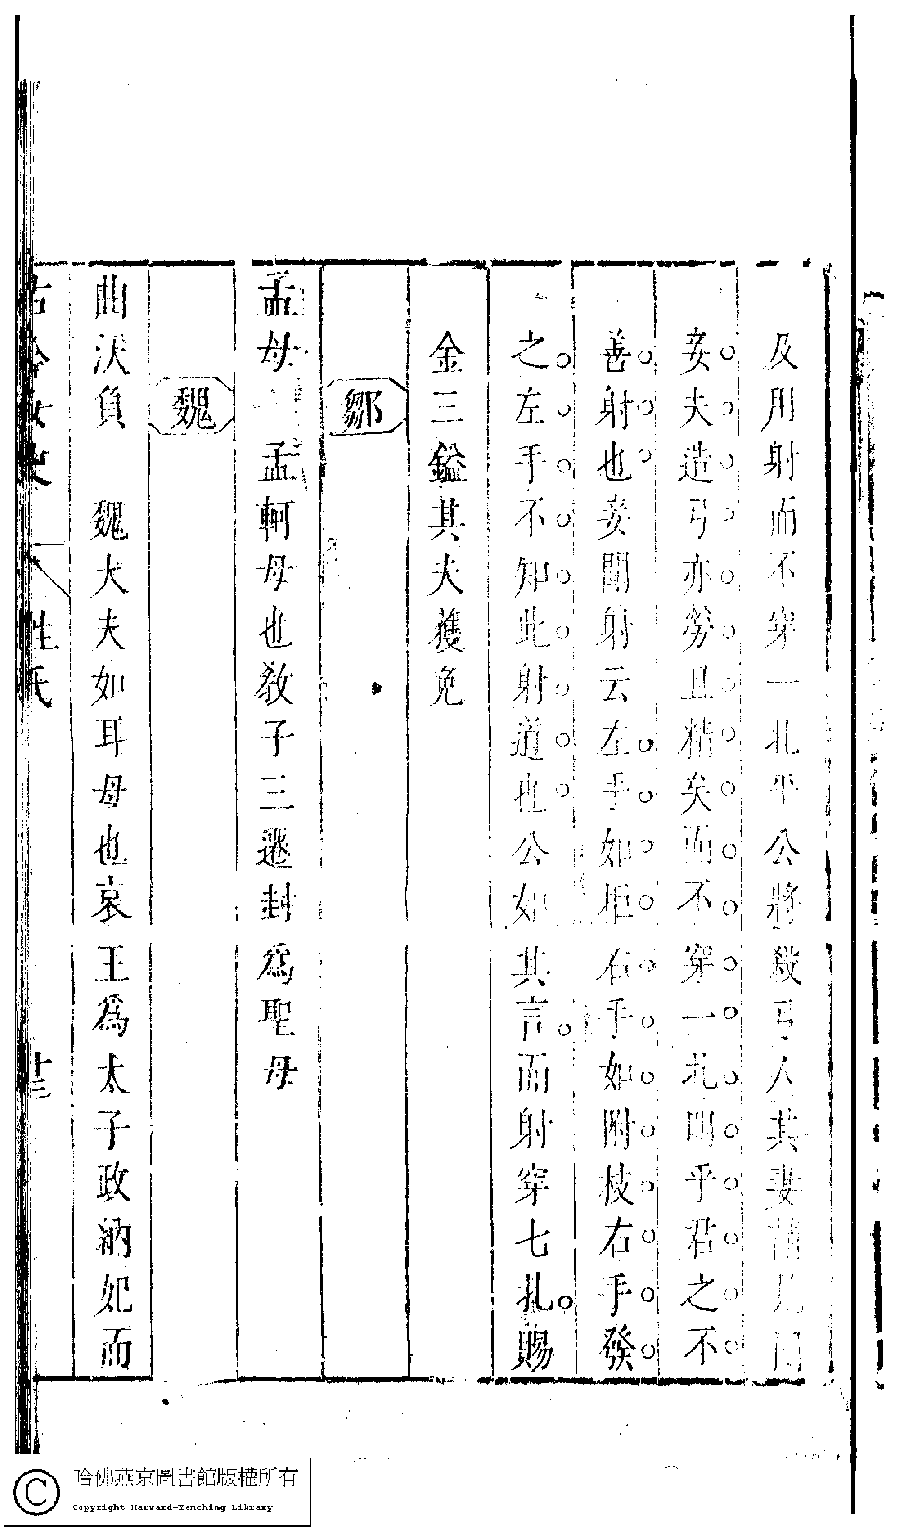 及用射而不穿一札平公將殺弓人其妻請見曰
妾夫造弓亦勞且精矣而不穿一札凹乎君之不
善射也妾聞射云左手如拒右手如附枝右手發
之左手不知此射道也公如其言而射穿七札賜
金三鎰其夫獲免
鄒
孟母 孟軻母也教子三遷封為聖母
魏
曲沃負 魏大夫如耳母也哀王為太子政納妃而
古今女史 姓氏
哈佛燕京圖書館版權所有
Copyright Harvard-Yenching Library